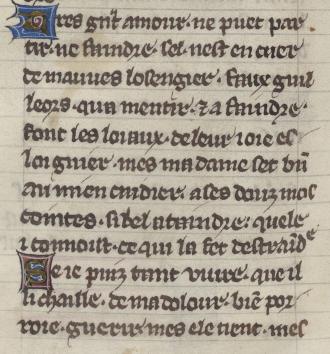 Tres grãt amour ne puet par
tir ne faindre. sel nest en cuer
de mauues losengier. faux guil
leors. qua mentir ⁊ a faindre.
font les loiaux. de leur ioie es
loignier. mes ma dame set biẽ
au mien cuidier. a ses douz mos
cointes. si bel ataindre. quele
i connoist. ce qui la fet destraĩdʳe
Se ie puis tant viure. que il
li chaille. de ma dolour. biẽ por
roie guerir. mes ele tient. mes